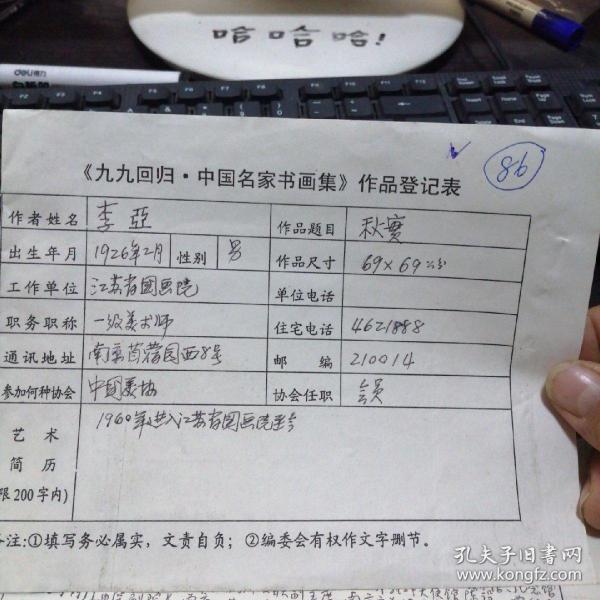 哈哈哈!
deli得力
《九九回归·中国名家书画集》作品登记表
86
作者姓名 李亞 作品题目 秋實
出生年月 1926年2月 性别 男 作品尺寸 69×69公分
工作单位 江苏省國画院 单位电话
职务职称 一级美术师 住宅电话 4621888
通讯地址 南京苜蓿园西8号 邮编 210014
参加何种协会 中國美协 协会任职 会员
艺术 1960年进入江苏省國画院至今
简历
限200字内)
备注:①填写务必属实,文责自负;②编委会有权作文字删节。
孔夫子旧书网
www.kongfz.com